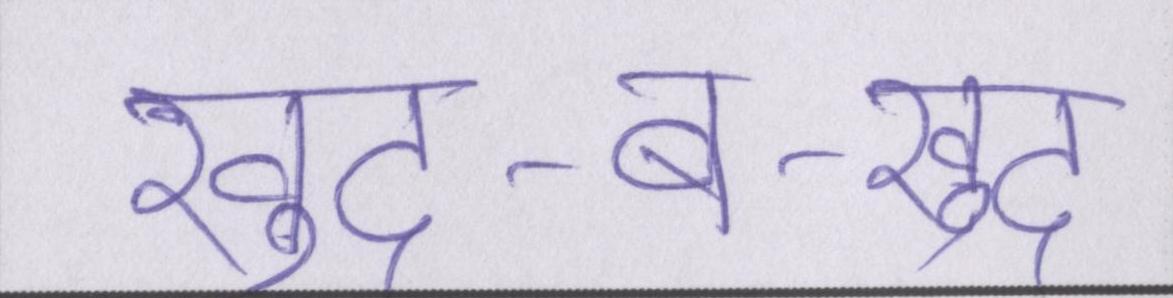 खुद-ब-खुद